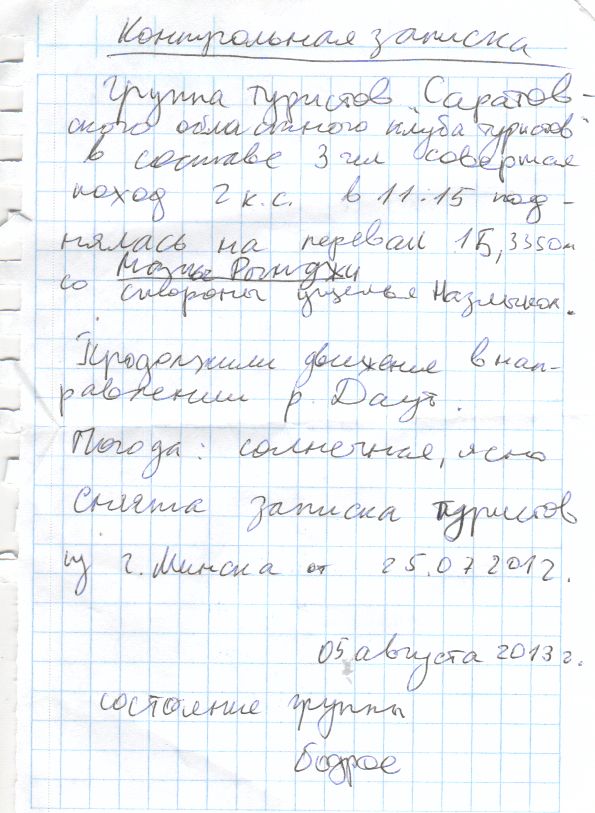 Контрольная записка
Группа туристов "Саратов-
ского областного клуба туристов"
в составе 3 чел совершая
поход 2 к.с. в 11:15 под-
нялась на перевал 1Б, 3350м
со стороны ущелья
Продолжили движение в нап-
равлении р. Даут.
Погода: солнечная, ясно
Снята записка туристов
из г. Минска от 25.07.2012.
05 августа 2013 г.
состояние группы
бодрое